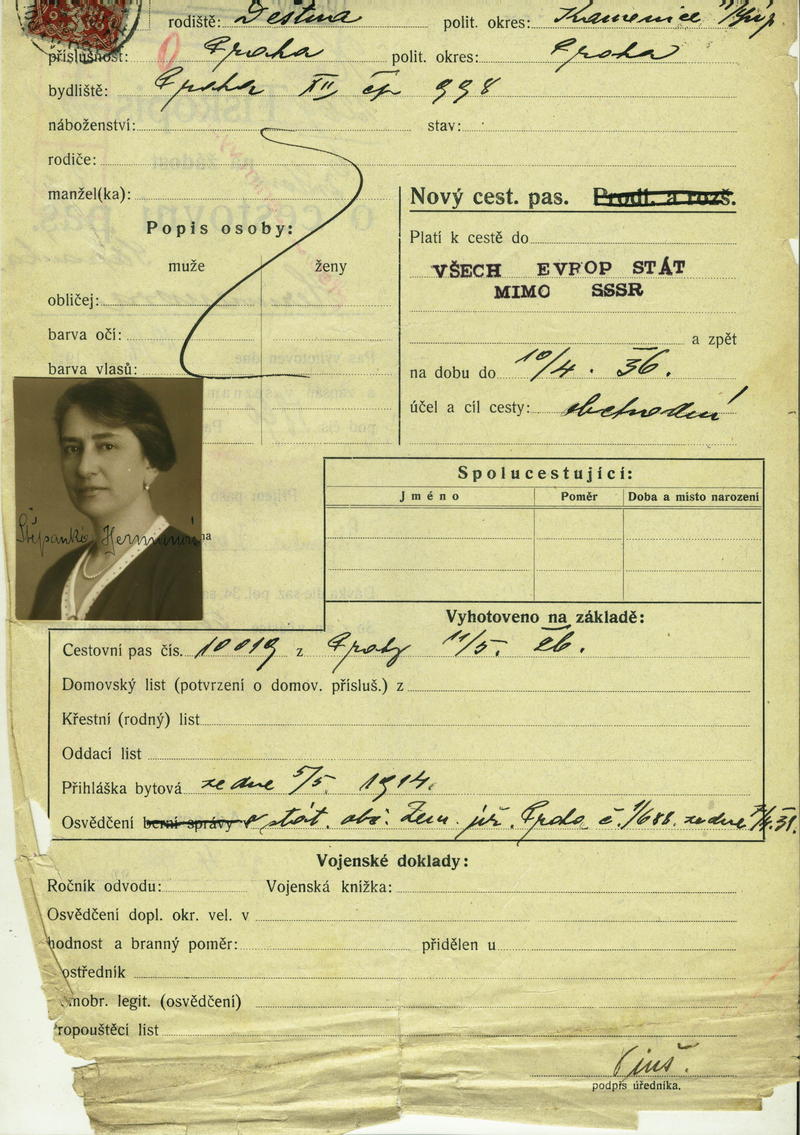 rodiště: Deštná polit. okres: Kamenice n/Lip
příslušnost: Praha polit. okres: Praha
bydliště: Praha XII čp 998
náboženství: stav:
rodiče:
manžel(ka):
Nový cest. pas. Prodl. a rozš.
Popis osoby:
Platí k cestě do
muže ženy
VŠECH EVROP STÁT
MIMO SSSR
obličej:
barva očí:
a zpět
barva vlasů:
na dobu do 10/4. 36.
účel a cíl cesty: obchodní
Spolucestující:
Jméno Poměr Doba a místo narození
Štěpánka Hermínina
Vyhotoveno na základě:
Cestovní pas čís. 10019 z Prahy 11/5. 26.
Domovský list (potvrzení o domov. přísluš.) z
Křestní (rodný) list
Oddací list
Přihláška bytová ze dne 5/5. 1914.
Osvědčení berní správy o stát. obč. Zem. úř. Praha č. 1/688. ze dne 31.
Vojenské doklady:
Ročník odvodu: Vojenská knížka:
Osvědčení dopl. okr. vel. v
hodnost a branný poměr: přidělen u
ostředník
mobr. legit. (osvědčení)
ropouštěcí list
podpis úředníka.